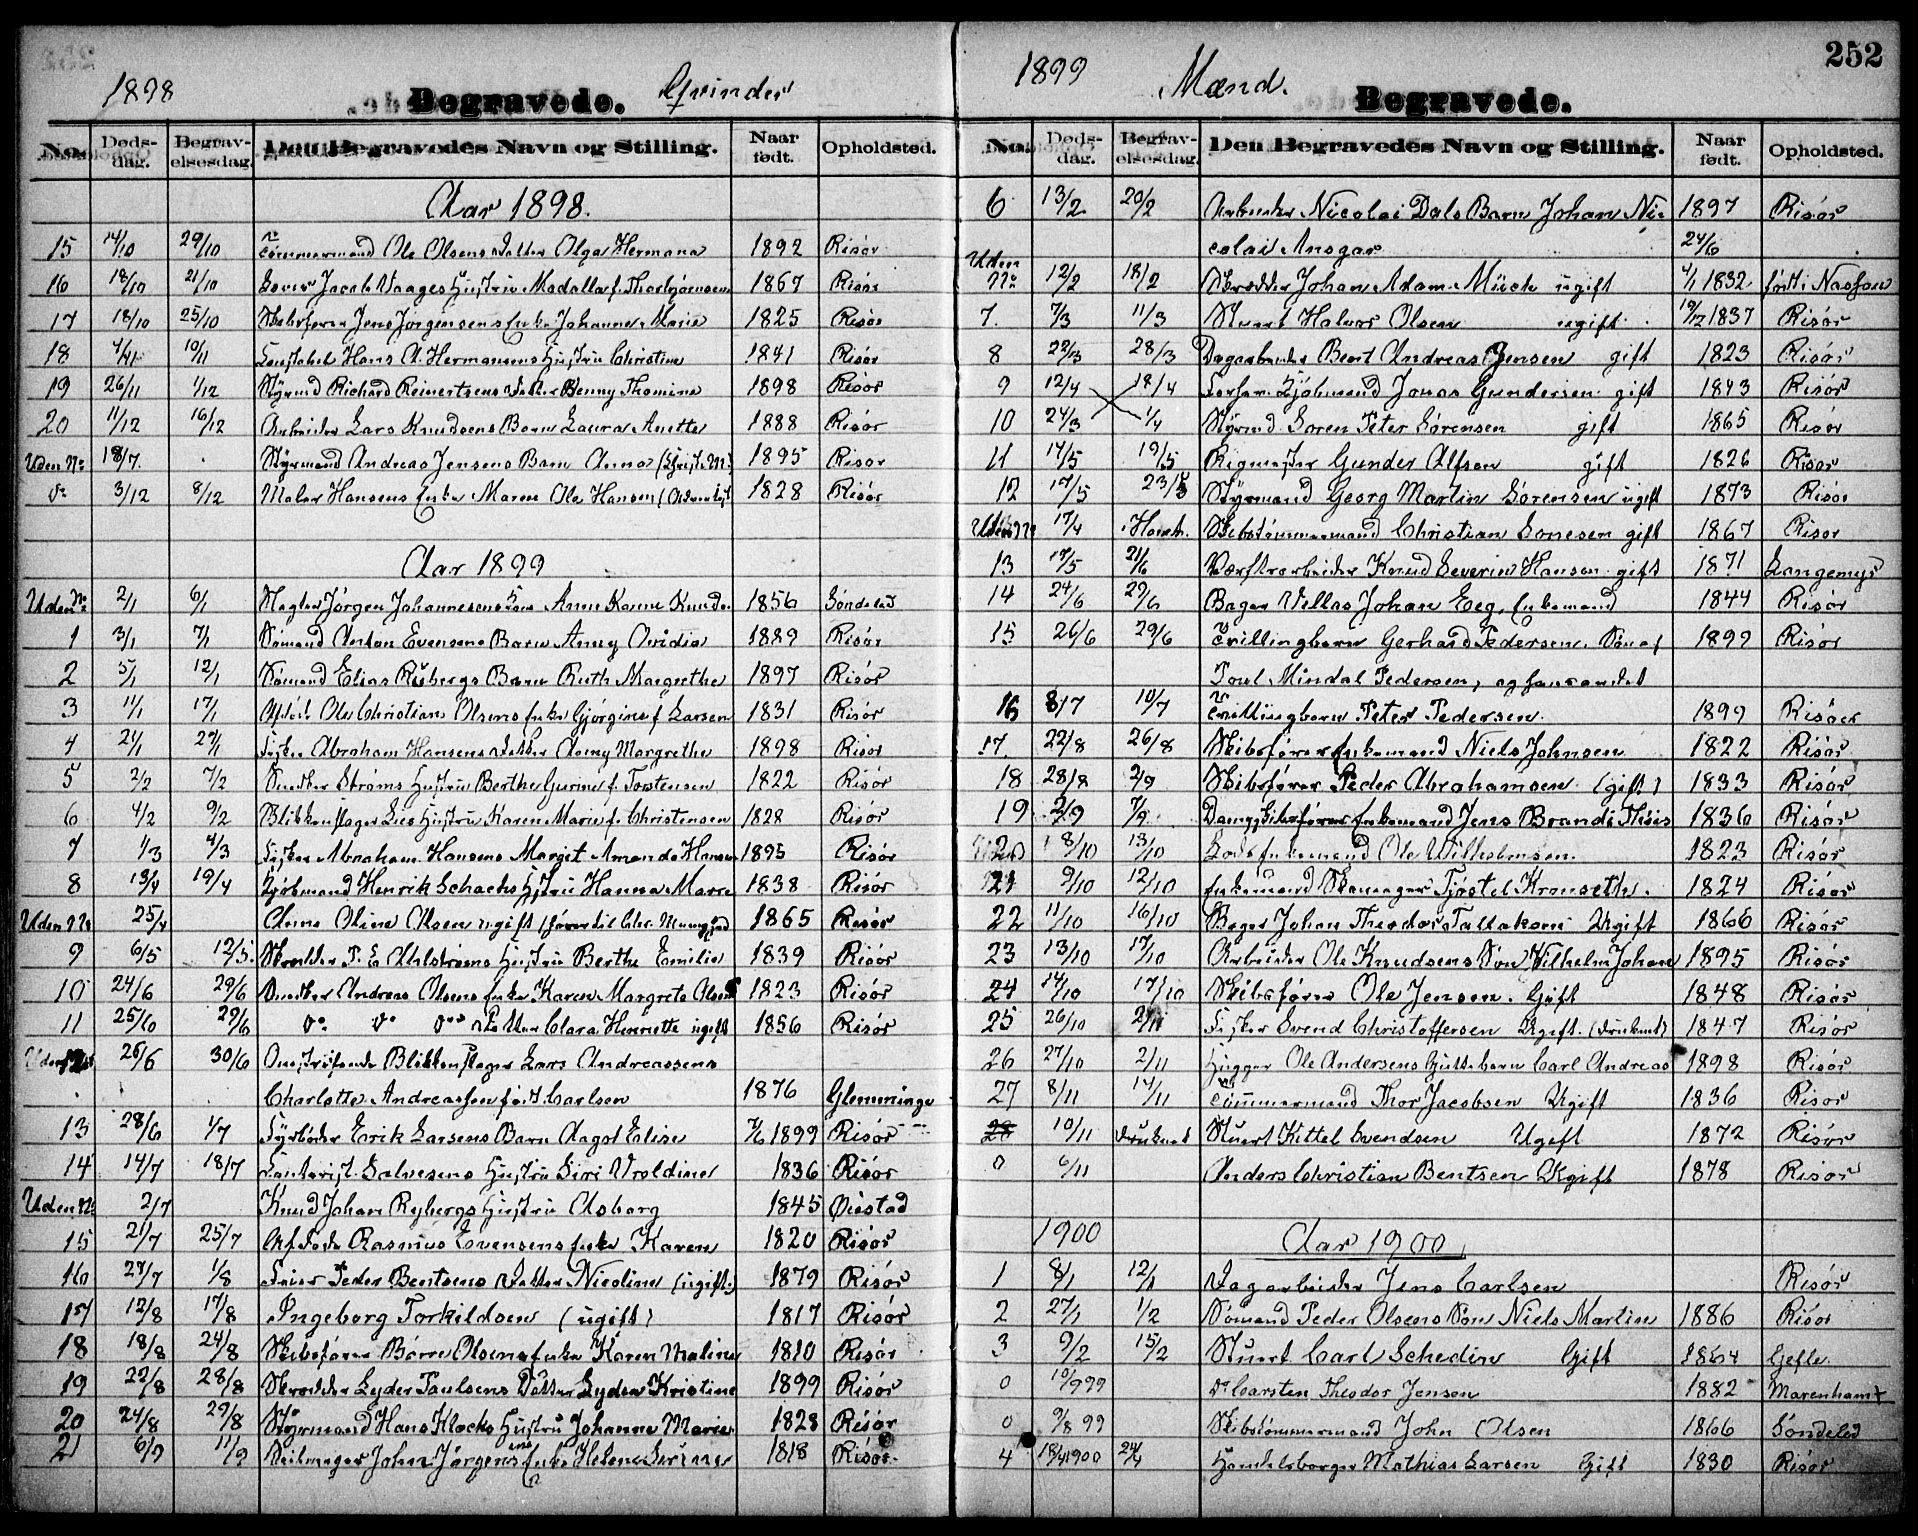 252
1898 Begravede. Qvinder
No. Døds-dag. Begrav-elsesdag. Den Begravedes Navn og Stilling. Naar født. Opholdsted.
Aar 1898.
15 14/10 29/10 Tømmermand Ole Olsens Datter Olga Hermana 1892 Risør
16 18/10 21/10 Jacob Vaages Hustru f. Thorbjørnsen 1867 Risør
17 18/10 25/10 Skibsfører Jens Jørgensens Enke Johanne Marie 1825 Risør
18 4/11 10/11 Hans A. Hermansens Hustru Christine 1841 Risør
19 26/11 1/12 Styrmd Richard Reinertsens Datter Benny Thomine 1898 Risør
20 11/12 16/12 Arbeider Lars Knudsens Barn Laura Anette 1888 Risør
Uden No 18/7. Styrmand Andreas Jensens Barn Anna 1895 Risør
do 3/12 8/12 Maler Hansens Enke Maren Ole Hansen 1828 Risør
Aar 1899
Uden No 2/1 6/1 Jørgen Johannesens Anne Karine 1856 Søndeled
1 3/1 7/1 Sømand Anton Evensens Barn Anny Ovidia 1889 Risør
2 5/1 12/1 Sømand Elias Rybergs Barn Ruth Margrethe 1897 Risør
3 11/1 17/1 Ole Christian Olsens Enke Gjørgine f Larsen 1831 Risør
4 21/1 27/1 Fisker Abraham Hansens Datter Margrethe 1898 Risør
5 2/2 7/2 Snedker Strøms Hustru Berthe Gurine f. Torstensen 1822 Risør
6 4/2 9/2 Blikkenslager Lies Hustru Karen Marie f. Christensen 1828 Risør
7 1/3 4/3 Fisker Abraham Hansens Margit Amanda Hansen 1895 Risør
8 13/4 19/4 Kjøbmand Henrik Schacks Hustru Hanna Marie 1838 Risør
Uden No 25/4 Anne Oline Olsen ugift 1865 Risør
9 6/5 12/5. Skrædder P. E Ahlstrøms Hustru Berthe Emilie 1839 Risør
10 24/6 29/6 Snedker Andreas Olsens Enke Karen Margrete Olsen 1823 Risør
11 25/6 29/6 do do do Datter Clara Henriette ugift 1856 Risør
26/6 30/6 Blikkenslager Lars Andreassens
Charlotte Andreassen født Carlsen 1876 Glemminge
13 28/6 1/7 Fyrbøder Erik Larsens Barn Aagot Elise 1899 Risør
14 14/7 18/7 Salvesens Hustru Siri 1836 Risør
Uden No 2/7 Knud Johan Rybergs Hustru Asborg 1845 Øiestad
15 21/7 25/7 Afdøde Rasmus Evensens Enke Karen 1820 Risør
16 27/7 1/8 Peder Bentsens Datter Nicoline (ugift) 1879 Risør
17 12/8 17/8 Ingeborg Torkildsen (ugift) 1817 Risør
18 18/8 24/8 Skibsfører Børre Olsens Enke Karen Maline 1810 Risør
19 22/8 28/8 Skrædder Lyder Paulsens Datter Lyder Kristine 1899 Risør
20 24/8 29/8 Styrmand Hans Klocks Hustru Johanne Marie 1828 Risør
21 6/9 11/9 Seilmager John Jørgensens Enke Helene Serine 1818 Risør
1899 Mænd. Begravede.
No. Døds-dag. Begrav-elsesdag. Den Begravedes Navn og Stilling. Naar født. Opholdsted.
6 13/2 20/2 Arbeider Nicolai Dals Barn Johan Ni- 1897 Risør
colai Ansgar 24/6
Uden No 12/2 18/2 Skrædder Johan Adam Mück ugift 4/1 1832 født i Nassau
7. 7/3 11/3 Stuert Halvor Olsen ugift 19/12 1837 Risør
8 22/3 28/3 Dagarbeider Bent Andreas Jensen gift 1823 Risør
9 12/4 18/4 Kjøbmand Jonas Gundersen gift 1843 Risør
10 24/3 1/4 Styrmd. Søren Peter Sørensen gift 1865 Risør
11 14/5 19/5 Rigmester Gunder Alfsen gift 1826 Risør
12 17/5 23/5 Styrmand Georg Martin Sørensen ugift 1873 Risør
Uden No 17/4 Skibstømmermand Christian gift 1867 Risør
13 17/5 21/6 Værftsarbeider Knud Severin Hansen gift 1871
14 24/6 29/6 Bager Vellas Johan Eeg, Enkemand 1844 Risør
15 26/6 29/6 Tvillingbarn Gerhard Pedersen. Søn af 1899 Risør
Mindal Pedersen,
16 8/7 10/7 Tvillingbarn Peter Pedersen. 1899 Risøer
17. 22/8 26/8 Skibsfører Enkemand Niels Johnsen 1822 Risør
18 28/8 2/9 Skibsfører Peder Abrahamsen (gift) 1833 Risør
19 2/9 7/9 Enkemand Jens Brandt Thiis 1836 Risør
20 8/10 13/10 Lods Enkemand Ole Wilhelmsen. 1823 Risør
21 9/10 12/10 Enkemand Skomager Tjøstel Kronsethe. 1824 Risør
22 11/10 16/10 Bager Johan Theodor Tallaksen Ugift 1866 Risør
23 13/10 17/10 Arbeider Ole Knudsens Søn Vilhelm Johan 1895 Risør
24 14/10 17/10 Skibsfører Ole Jensen. Gift 1848 Risør
25 26/10 Fisker Svend Christoffersen Ugift. (druknet) 1847 Risør
26 27/10 2/11 Hugger Ole Andersens Guttebarn Carl Andreas 1898 Risør
27 8/11 14/11 Tømmermand Thor Jacobsen Ugift 1836 Risør
28 10/11 druknet Stuert Kittel Svendsen Ugift 1872 Risør
0 6/11 Anders Christian Bentsen Ugift 1878 Risør
1900 Aar 1900
1 8/1 12/1 Dagarbeider Jens Carlsen Risør
2 27/1 1/2 Sømand Peder Olsens Søn Niels Martin 1886 Risør
3 9/2 15/2 Stuert Carl Schedin Gift 1864 Gefle
0 10/9 99 Carsten Theodor Jensen 1882
0 9/8 99 Skibstømmermand John Olsen 1866 Søndeled
4 18/4 1900 24/4 Handelsborger Mathias Larsen Gift 1830 Risør